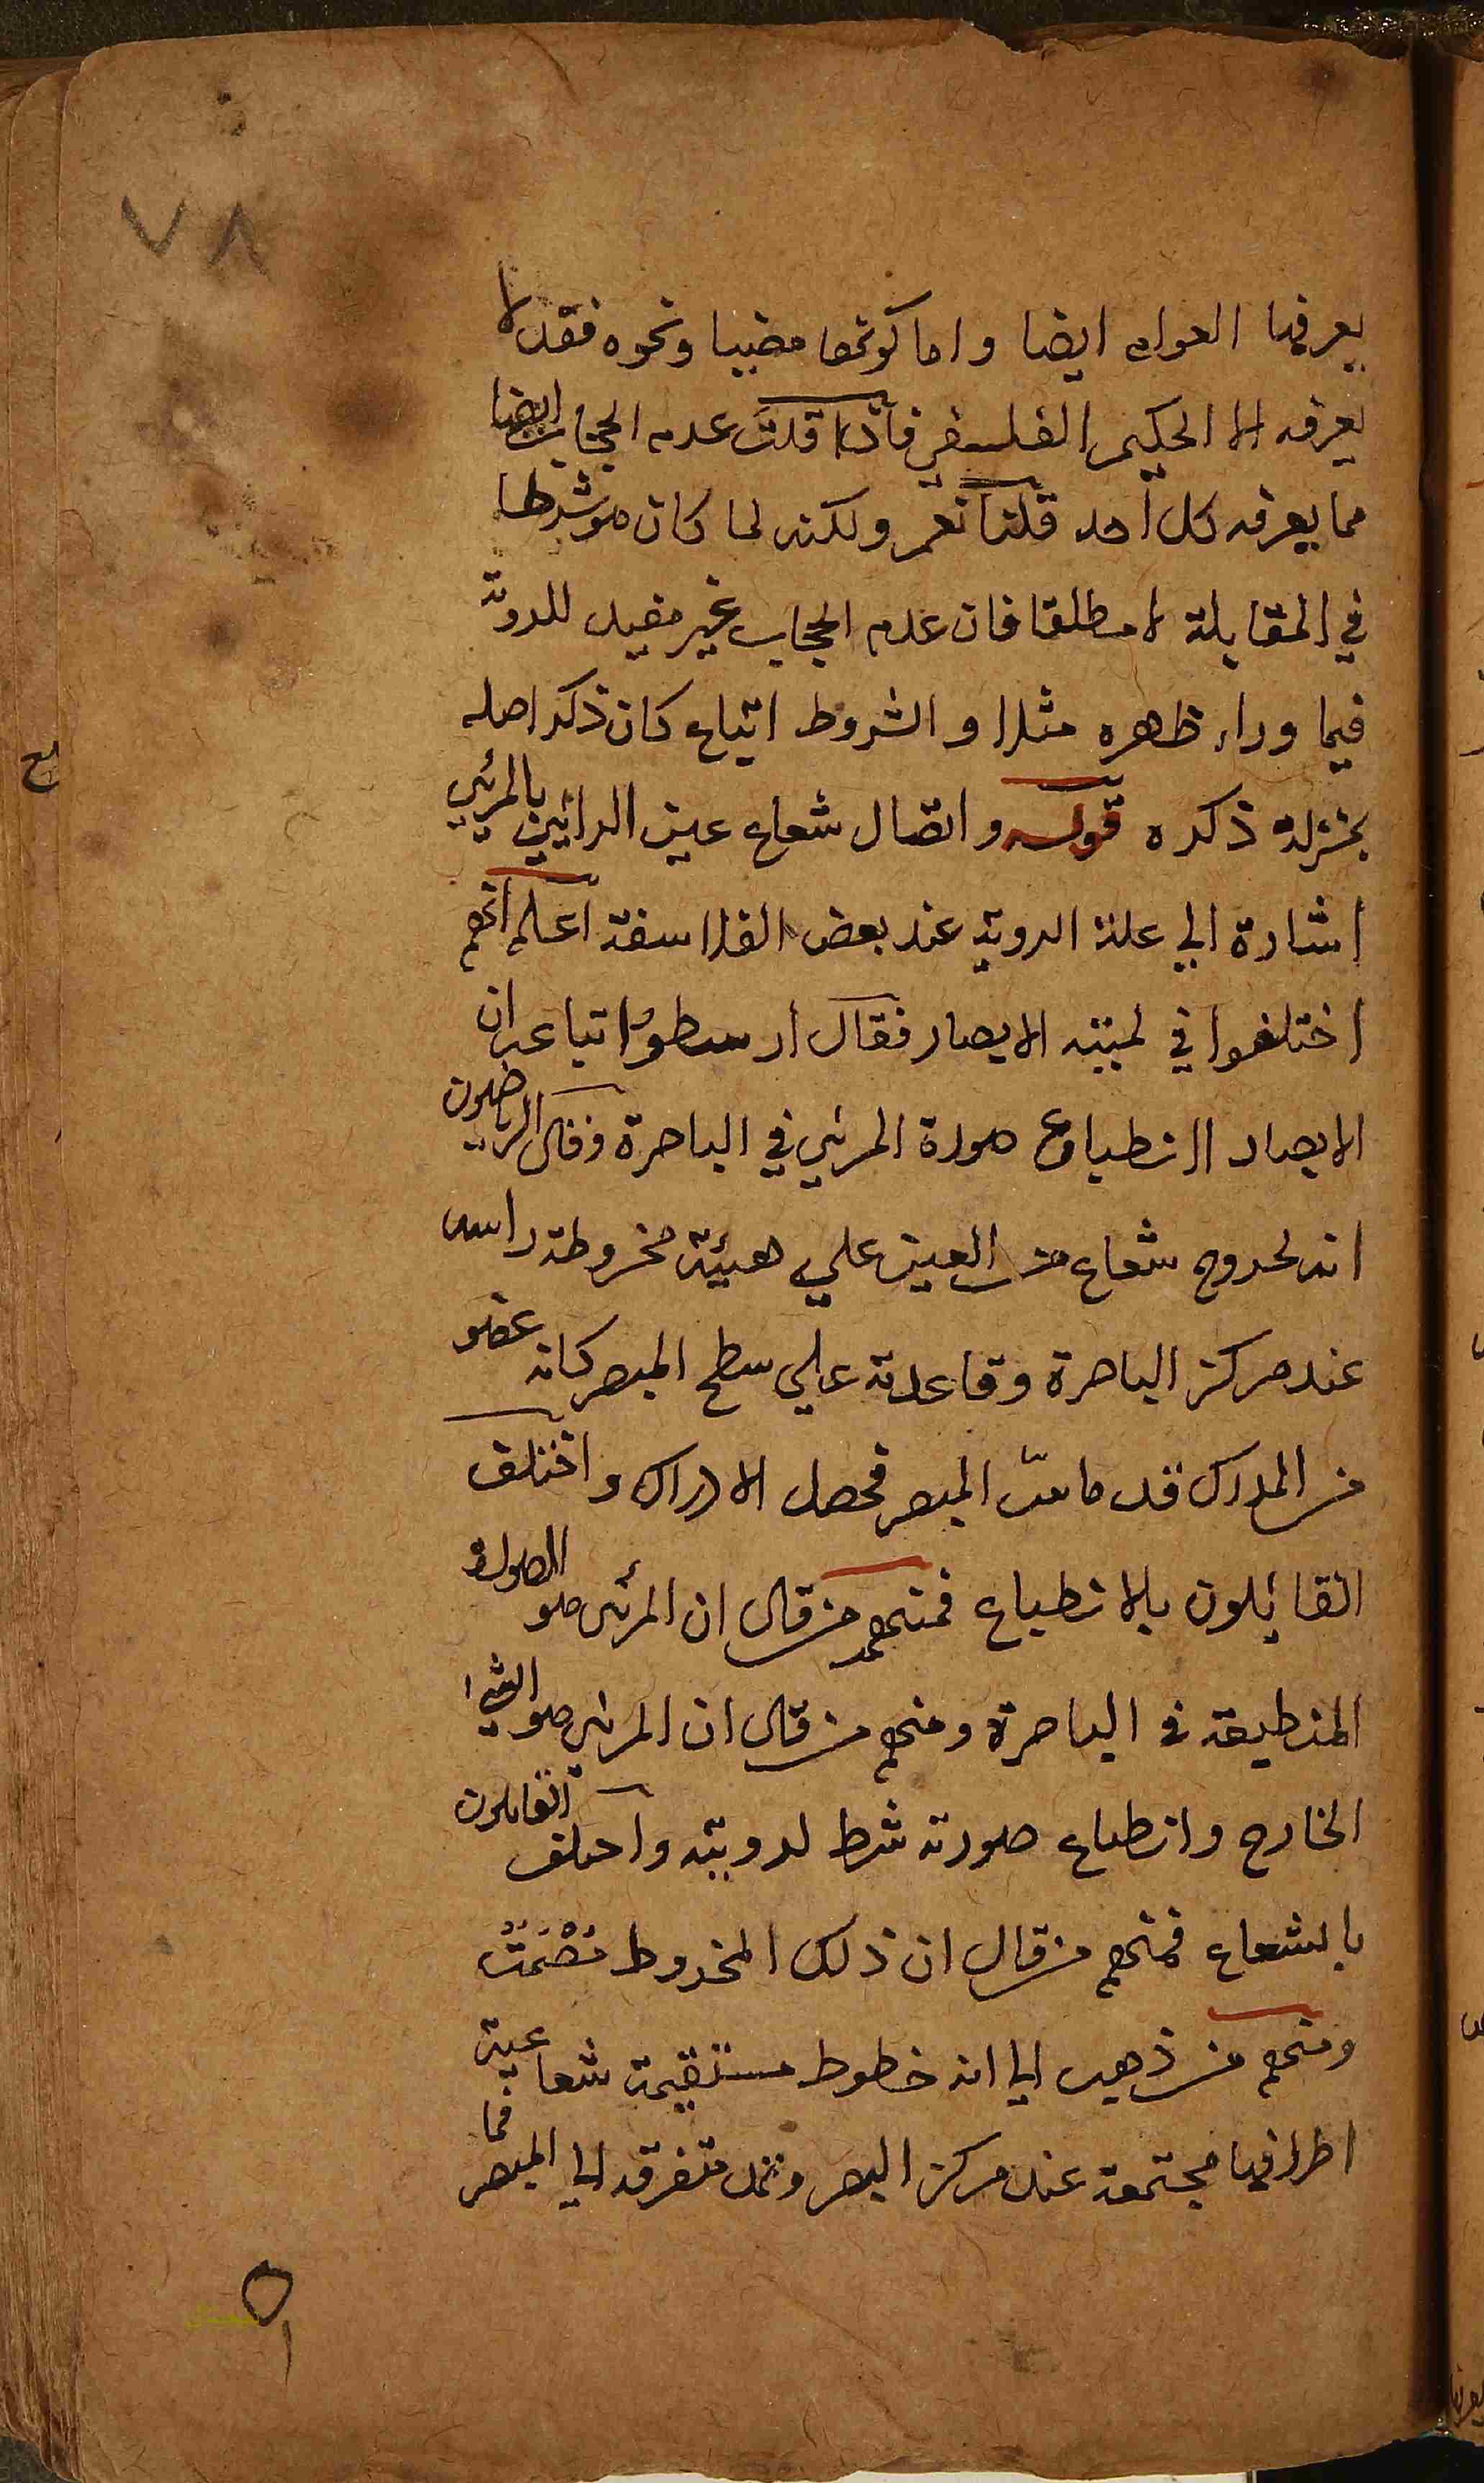 ٧٨
يعرفها العوام ايضا واما كونها مضيا ونحوه فقد لا
يعرفه الا الحكيم الفلسفي فاذا قلت عدم الحجاب ايضا
مما يعرفه كل احد قلنا نعم ولكنه لما كان هو شرطا
في المقابلة لا مطلقا فان عدم الحجاب غير مفيد للروية
فيما وراء ظهره مثلا والشروط اتباع كان ذكر اصله
بمنزلة ذكره قوله واتصال شعاع عين الرائين بالمرئي
اشارة الي علة الروية عند بعض الفلاسفة اعلم انهم
اختلفوا في لمية الابصار فقال ارسطو واتباعه ان
الابصار انطباع صورة المرئي في الباصرة وقال الرياضيون
انه لخروج شعاع من العين علي هيئة مخروطة راسه
عند مركز الباصرة وقاعدته علي سطح المبصر كانه عضو
من المدرك قد ماس المبصر فحصل الادراك واختلف
القائلون بالانطباع فمنهم من قال ان المرئي هو الصورة
المنطبعة في الباصرة ومنهم من قال ان المرئي هو الشي
الخارج وانطباع صورته شرط لرويته واختلف القائلون
بالشعاع فمنهم من قال ان ذلك المخروط مُصْمَتٌ
ومنهم من ذهب الي انه خطوط مستقيمة شعاعية
اطرافها مجتمعة عند مركز البصر متفرقه الي المبصر فما